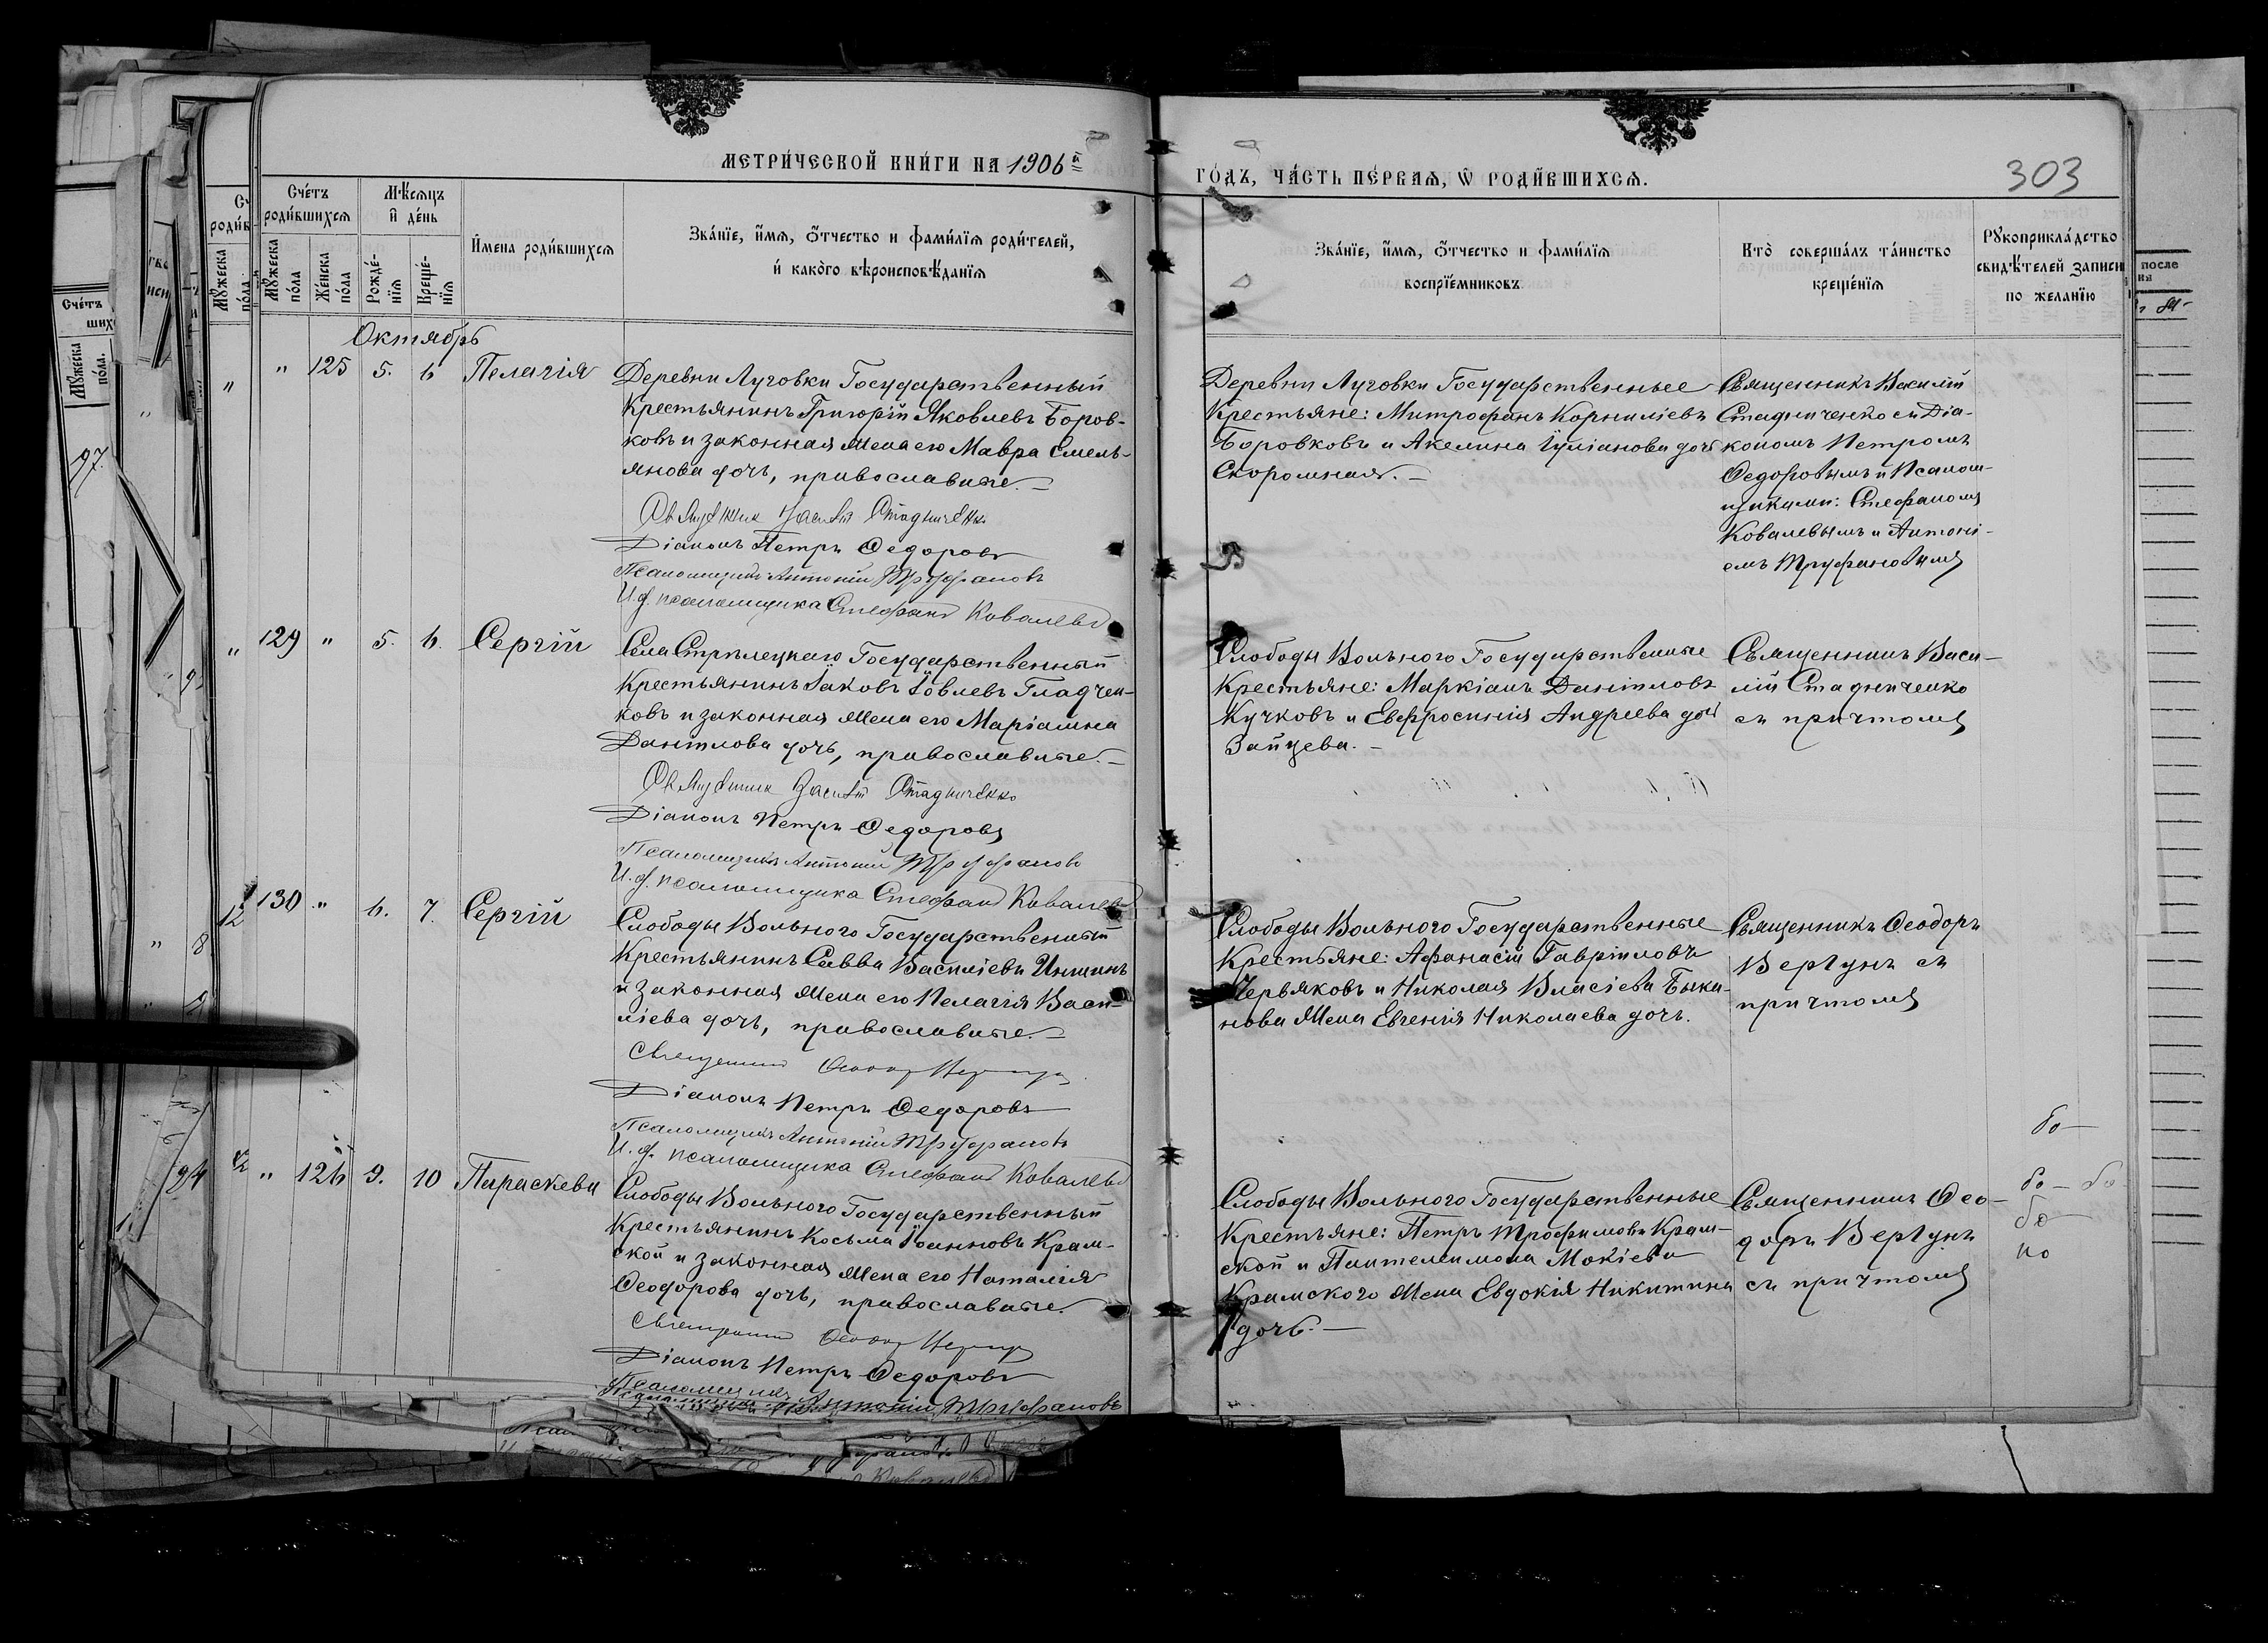 МЕТРИ́ЧЕСКОЙ КНИ́ГИ НА 1906й
ГО́ДЪ, ЧА́СТЬ ПЕ́РВАЯ, Ѿ РОДИ́ВШИХСЯ.
303
Сче́тъ роди́вшихся
Мѣ́сяцъ и де́нь
Имена роди́вшихся
Зва́нїе, и́мя, о́тчество и фами́лїя роди́телей,
и́ како́го вѣроисповѣ́данїя
Зва́нїе, и́мя, о́тчество и фами́лїя
воспрїе́мниковъ
Кто̀ соверша́лъ та́инство
креще́нїя
Рꙋкоприкла́дство
свидѣ́телей записи
по жела́нїю
Мꙋ́жеска по́ла
Же́нска по́ла
Рожде́нїя
Креще́нїя
Октябрь
" 125 5. 6 Пелагія
Деревни Луговки Государственный
Крестьянинъ Григорій Яковлевъ Боров-
ковъ и законная жена его Мавра Емель-
янова дочь, православные.—
Священник Василій Стадниченко
Діаконъ Петръ Федоровъ
Псаломщикъ Антоній Труфановъ
И. д. псаломщика Стефанъ Ковалевъ
Деревни Луговки Государственные
Крестьяне: Митрофанъ Корниліевъ
Боровковъ и Акелина Іуліанова дочь
Скоромная.—
Священникъ Василій
Стадниченко съ Діа-
кономъ Петромъ
Федоровымъ и Псалом-
щиками: Стефаномъ
Ковалевымъ и Антоні-
емъ Труфановымъ
129 " 5. 6. Сергій
Села Стрѣлецкаго Государственный
Крестьянинъ Іаковъ Іовлевъ Гладчен-
ковъ и законная жена его Маріамна
Даніилова дочь, православные.—
Священник Василій Стадниченко
Діаконъ Петръ Федоровъ
Псаломщикъ Антоній Труфановъ
И. д. псаломщика Стефанъ Ковалевъ
Слободы Вольного Государственные
Крестьяне: Маркіанъ Даніиловъ
Кучковъ и Евфросинія Андреева дочь
Зайцева.—
Священникъ Васи-
лій Стадниченко
съ причтомъ
130 " 6. 7. Сергій
Слободы Вольного Государственный
Крестьянинъ Савва Василіевъ
и законная жена его Пелагія Васи-
ліева дочь, православные.—
Священник Феодор Вергун
Діаконъ Петръ Федоровъ
Псаломщикъ Антоній Труфановъ
И. д. псаломщика Стефанъ Ковалевъ
Слободы Вольного Государственные
Крестьяне: Афанасій Гавріиловъ
Червяковъ и Николая Власіева Быка-
нова жена Евгенія Николаева дочь.
Священникъ Феодоръ
Вергунъ съ
причтомъ
" 126 9. 10 Параскева
Слободы Вольного Государственный
Крестьянинъ Косьма Іоанновъ Крам-
ской и законная жена его Наталія
Феодорова дочь, православные.
Священник Феодор Вергун
Діаконъ Петръ Федоровъ
Псаломщикъ Антоній Труфановъ
Слободы Вольного Государственные
Крестьяне: Петръ Трофимовъ Крам-
ской и Пантелеимона Мокіева
Крамского жена Евдокія Никитина
дочь.—
Священникъ Фео-
доръ Вергунъ
съ причтомъ